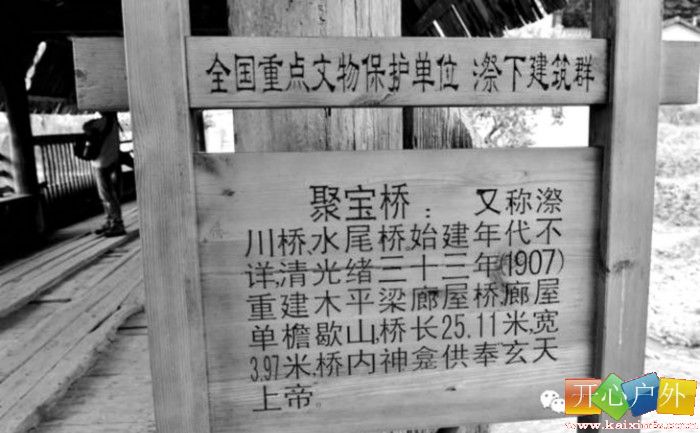 全国重点文物保护单位 漈下建筑群
聚宝桥：又称漈
川桥、水尾桥,始建年代不
详,清光绪三十三年(1907)
重建木平梁廊屋桥,廊屋
单檐歇山,桥长25.11米,宽
3.97米,桥内神龛供奉玄天
上帝。
开心户外